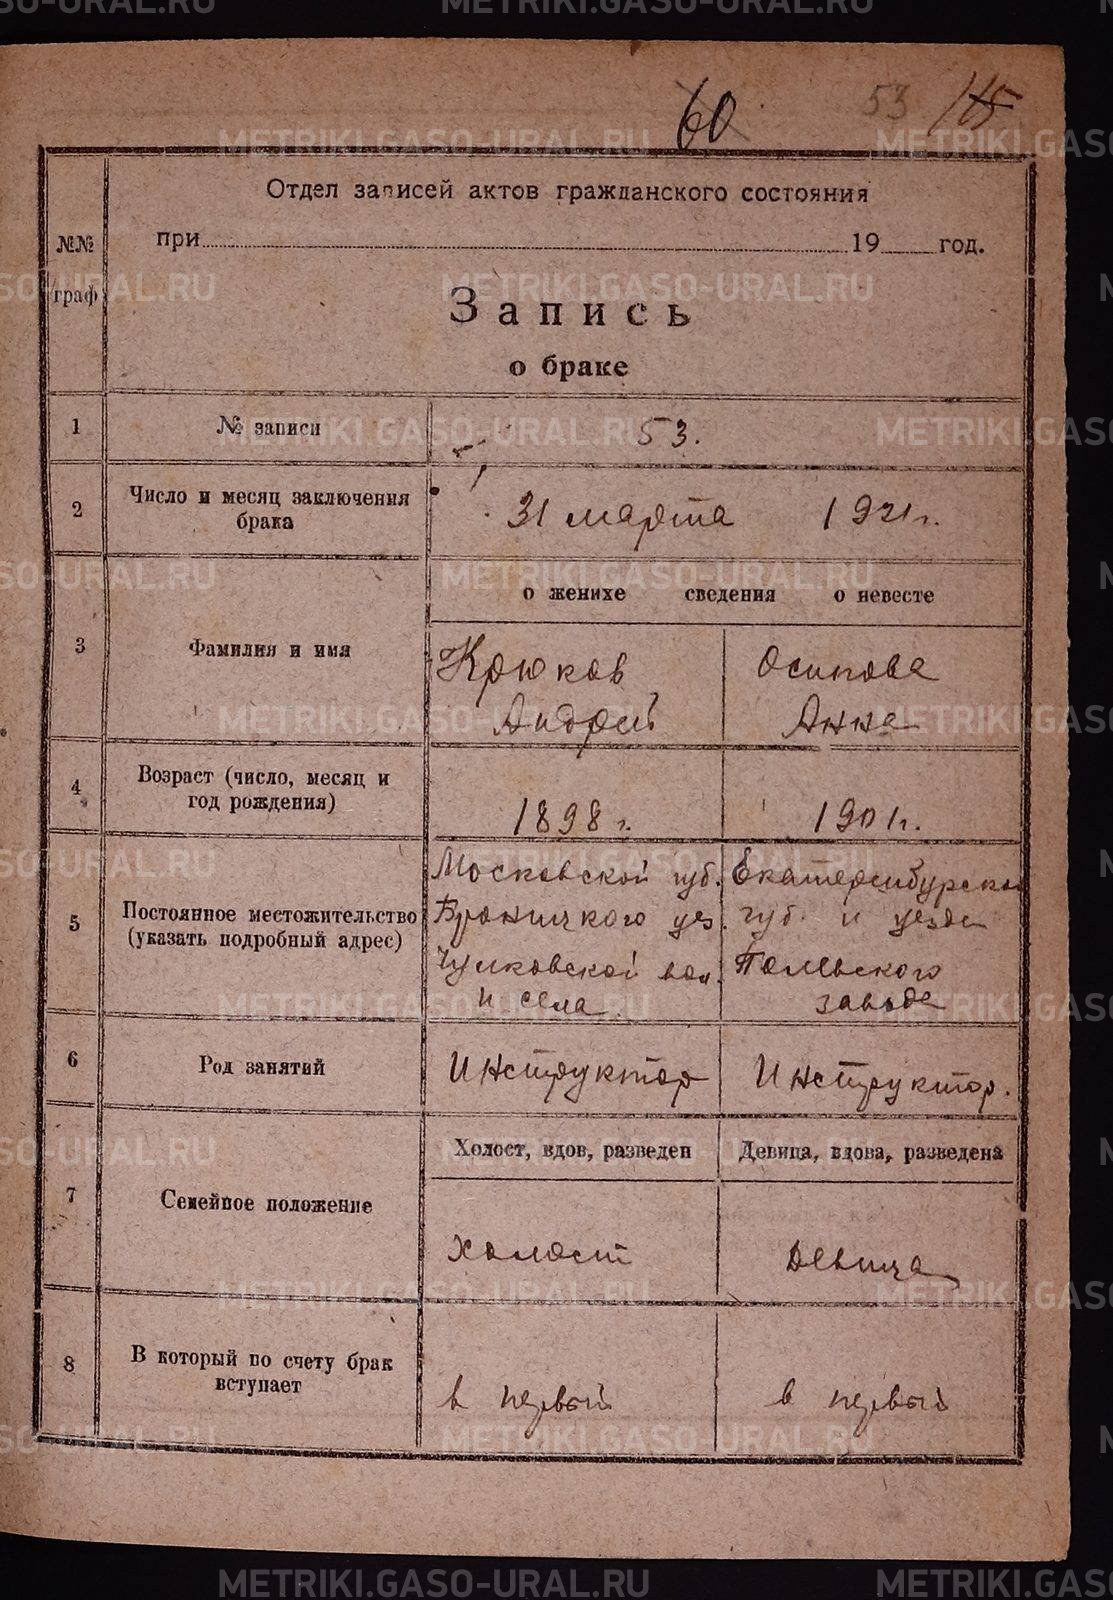 60 53
Отдел записей актов гражданского состояния
№№ граф
при 19 год.
Запись
о браке
1 № записи 53.
2 Число и месяц заключения
брака
31 марта 1921 г.
о женихе сведения о невесте
3 Фамилия и имя
Крюков Осипова
Андрей Анна
4 Возраст (число, месяц и
год рождения)
1898 г. 1901 г.
5 Постоянное местожительство
(указать подробный адрес)
Московской губ. Екатеринбурской
Броницкого уез. губ. и уезда
Чулковской вол. Полевского
и села. завода
6 Род занятий
Инструктор Инструктор.
Холост, вдов, разведен Девица, вдова, разведена
7 Семейное положение
холост девица
8 В который по счету брак
вступает
в первый в первый
METRIKI.GASO-URAL.RU